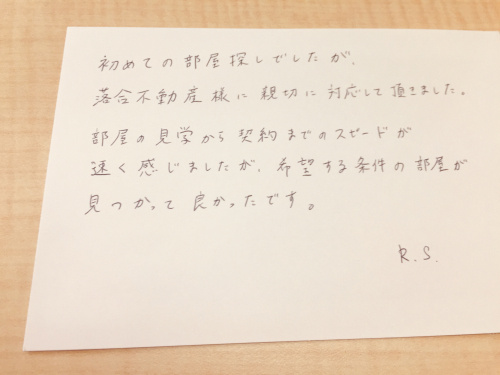 初めての部屋探しでしたが、
落合不動産様に親切に対応して頂きました。
部屋の見学から契約までのスピードが
速く感じましたが、希望する条件の部屋が
見つかって良かったです。
R.S.